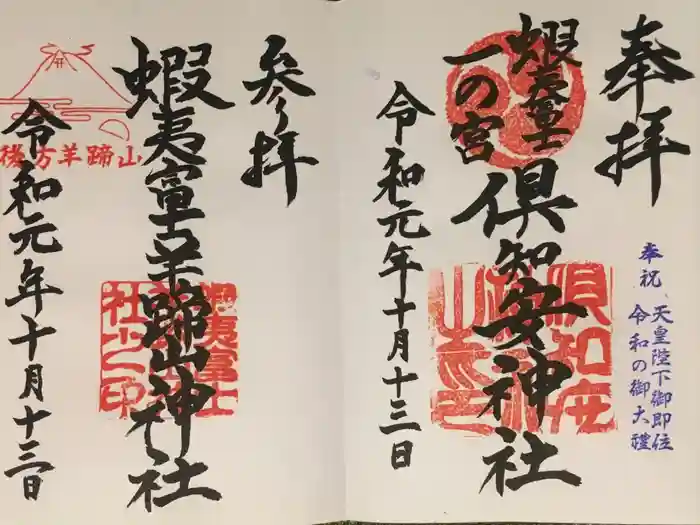 奉拝
蝦夷富士
一の宮
倶知安神社
令和元年十月十三日
奉祝 天皇陛下御即位
令和の御大禮
参拝
蝦夷富士羊蹄山神社
令和元年十月十三日
後方羊蹄山